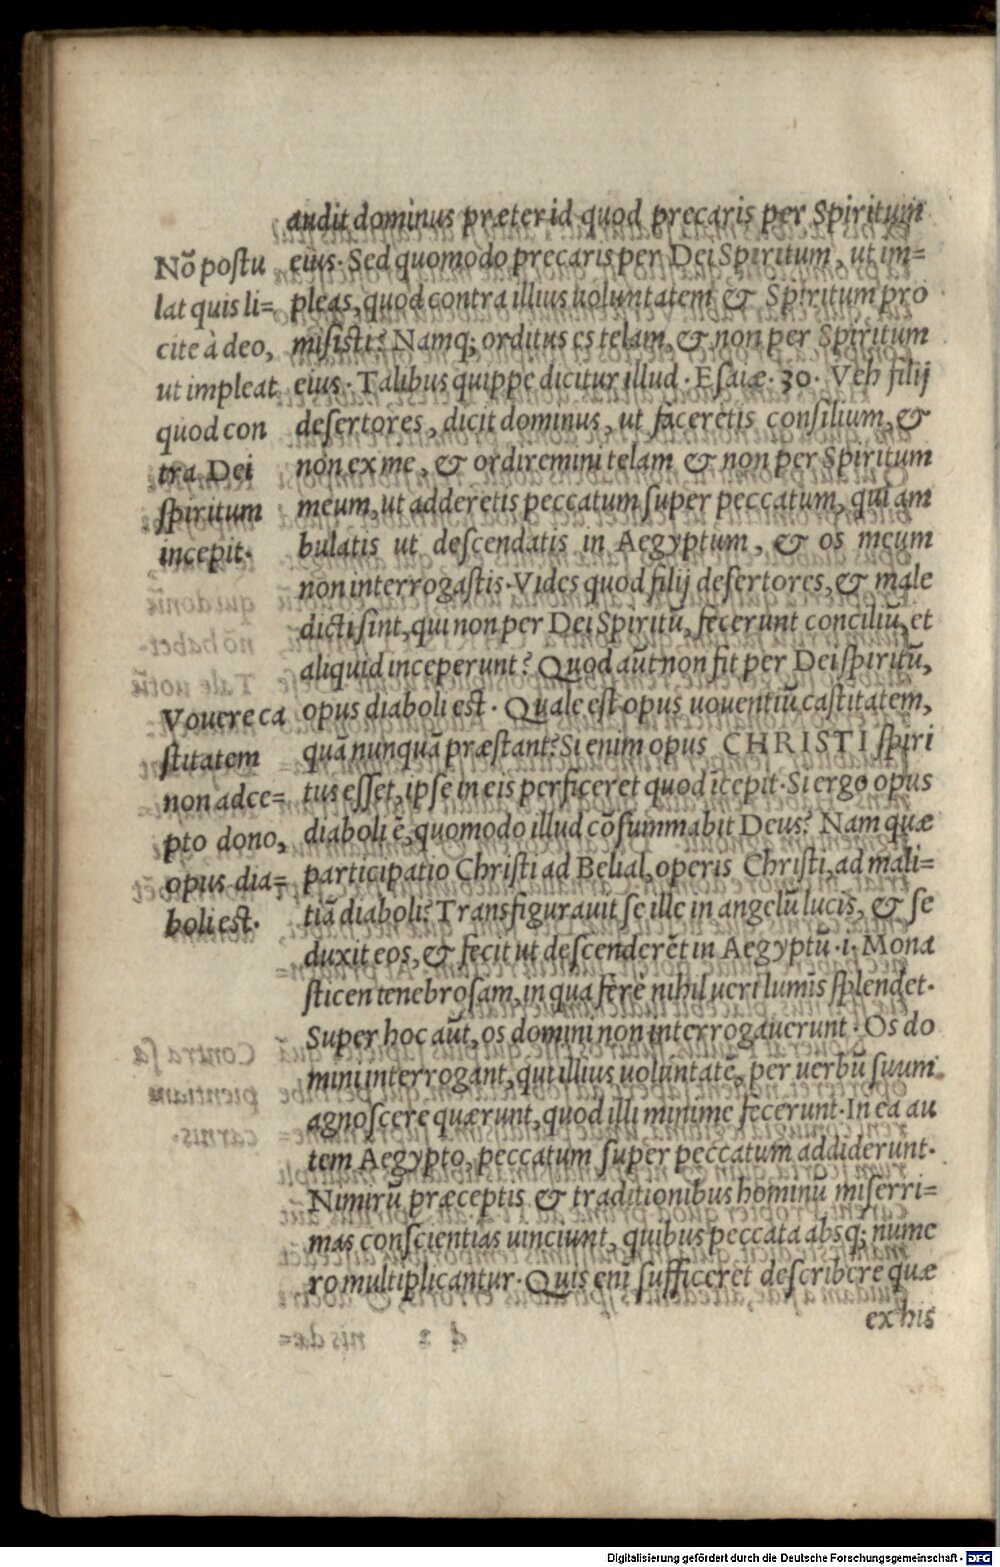 audit dominus præter id quod precaris per Spiritum
eius. Sed quomodo precaris per Dei Spiritum, ut im=
pleas, quod contra illius uoluntatem & Spiritum pro
misisti? Namq; orditus es telam, & non per Spiritum
eius. Talibus quippe dicitur illud. Esaiæ. 30. Veh filij
desertores, dicit dominus, ut faceretis consilium, &
non ex me, & ordiremini telam & non per Spiritum
meum, ut adderetis peccatum super peccatum, qui am
bulatis ut descendatis in Aegyptum, & os meum
non interrogastis. Vides quod filij desertores, & male
dicti sint, qui non per Dei Spiritū, fecerunt conciliū, et
aliquid inceperunt? Quod aūt non fit per Dei spiritū,
opus diaboli est. Quale est opus uouentiū castitatem,
quā nunquā præstant? Si enim opus CHRISTI spiri
tus esset, ipse in eis perficeret quod īcepit. Si ergo opus
diaboli ē, quomodo illud cōsummabit Deus? Nam quæ
participatio Christi ad Belial, operis Christi, ad mali=
tiā diaboli? Transfigurauit se ille in angelū lucis, & se
duxit eos, & fecit ut descenderēt in Aegyptū .i. Mona
sticen tenebrosam, in qua ferè nihil ueri lumīs splendet.
Super hoc aūt, os domini non interrogauerunt. Os do
mini interrogant, qui illius uoluntatē, per uerbū suum
agnoscere quærunt, quod illi minime fecerunt. In ea au
tem Aegypto, peccatum super peccatum addiderunt.
Nimirū præceptis & traditionibus hominū miserri=
mas conscientias uinciunt, quibus peccata absq; nume
ro multiplicantur. Quis enī sufficeret describere quæ
ex his
Nō postu
lat quis li=
cite à deo,
ut impleat
quod con
tra Dei
spiritum
incepit.
Vouere ca
stitatem
non adce=
pto dono,
opus dia=
boli est.
Digitalisierung gefördert durch die Deutsche Forschungsgemeinschaft - DFG